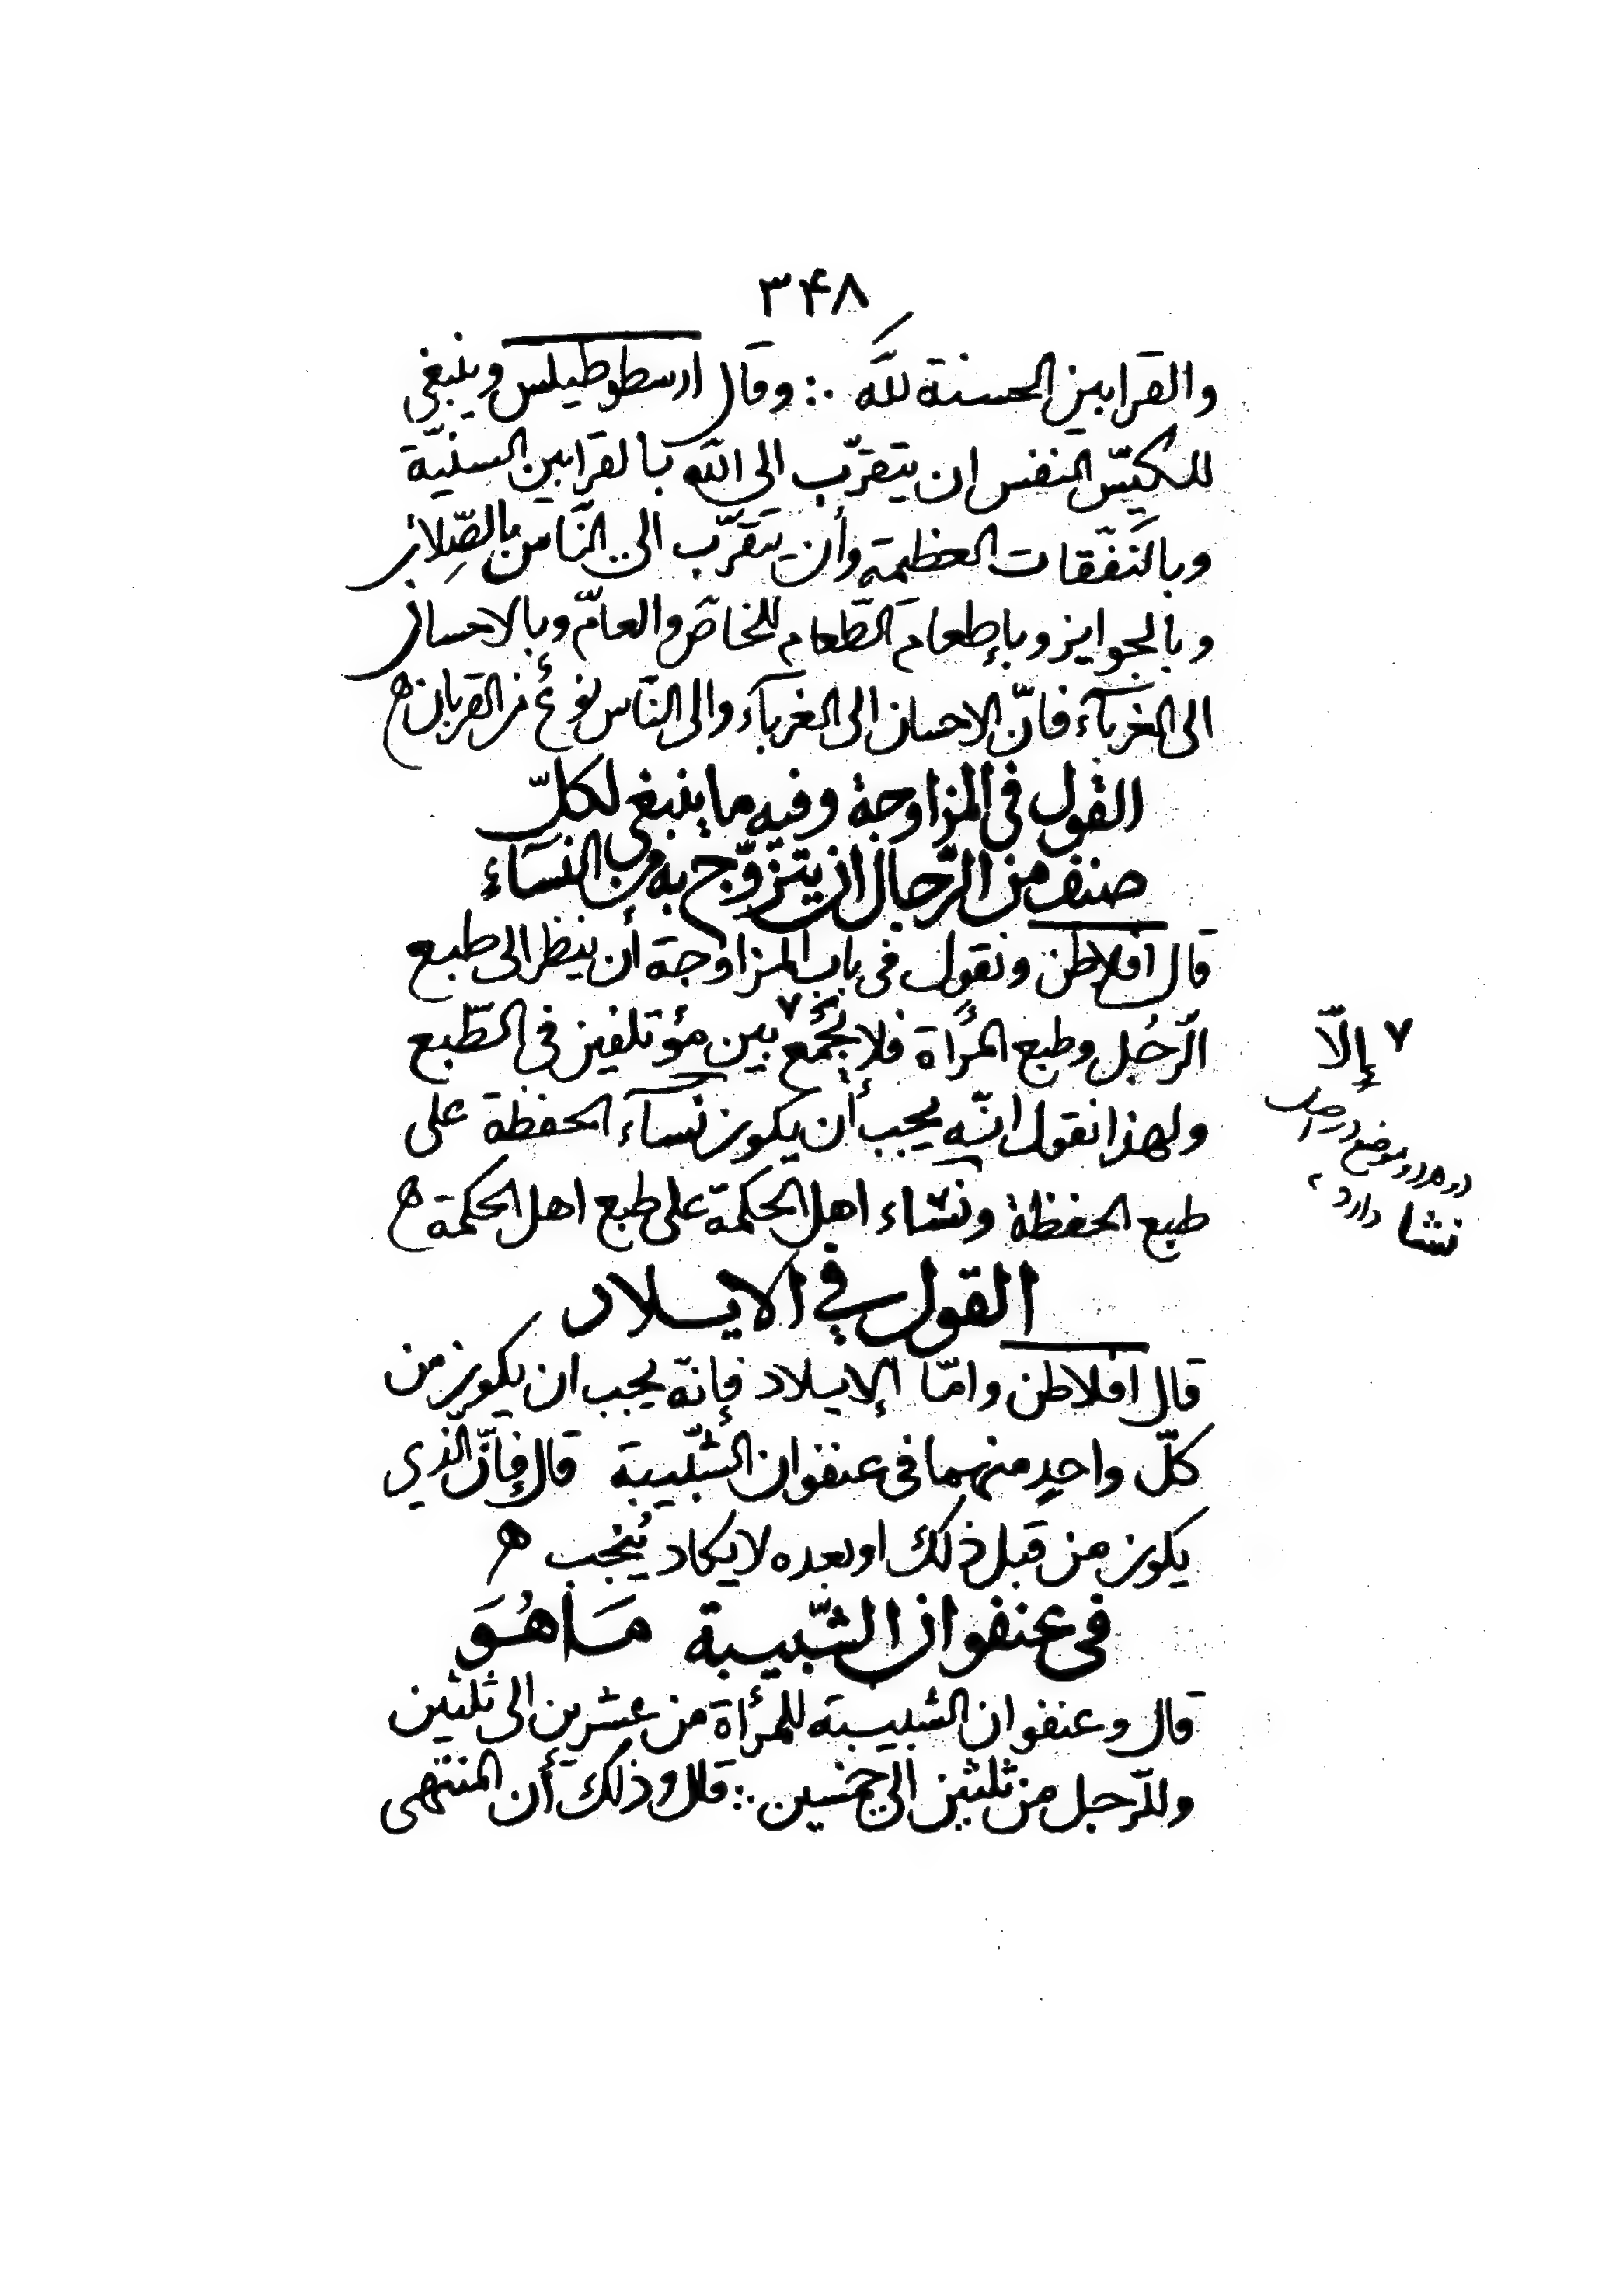 ۳۴۸
والقرابين الحسنة للّه ∴ وقال ارسطوطيلس وينبغي
للكيّس المنفس ان يتقرّب الى اللّه بالقرابين السنيّة
وبالنفقات العظيمة وأن يتقرّب الى النّاس بالصّلات
وبالجوايز وبإطعام الطّعام للخاصّ والعامّ وبالاحسان
الى الغربآء فانّ الاحسان الى الغربآء والى النّاس نوعٌ من القربان ه
القول فى المزاوجة وفيه ما ينبغي لكلّ
صنف من الرّجال ان يتزوّج به من النسآء
قال افلاطن ونقول فى باب المزاوجة أن ينظر الى طبع
الرّجُل وطبع المرأة فلا يُجْمع ٧ بين مؤتلفين فى الطّبع
ولهذا نقول انّه يجب أن يكون نسآء الحفظة على
طبع الحفظة ونشاء اهل الحكمة على طبع اهل الحكمة ه
القول في الايلاد
قال افلاطن وامّا الإيلاد فإنّه يجب ان يكون من
كلّ واحدٍ منهما فى عنفوان الشّبيبة قال فإنّ الّذي
يكون من قبل ذلك او بعده لا يكاد يُنجب ه
فى عنفوان الشّبيبة مَا هُوَ
قال وعنفوان الشبيبة للمرأة من عشرين الى ثلثين
وللرّجل من ثلثين الى خمسين ∴ قال وذلك أن المنتهى
٧ إلّا
در هر دو موضع در اصل
نشا دارد